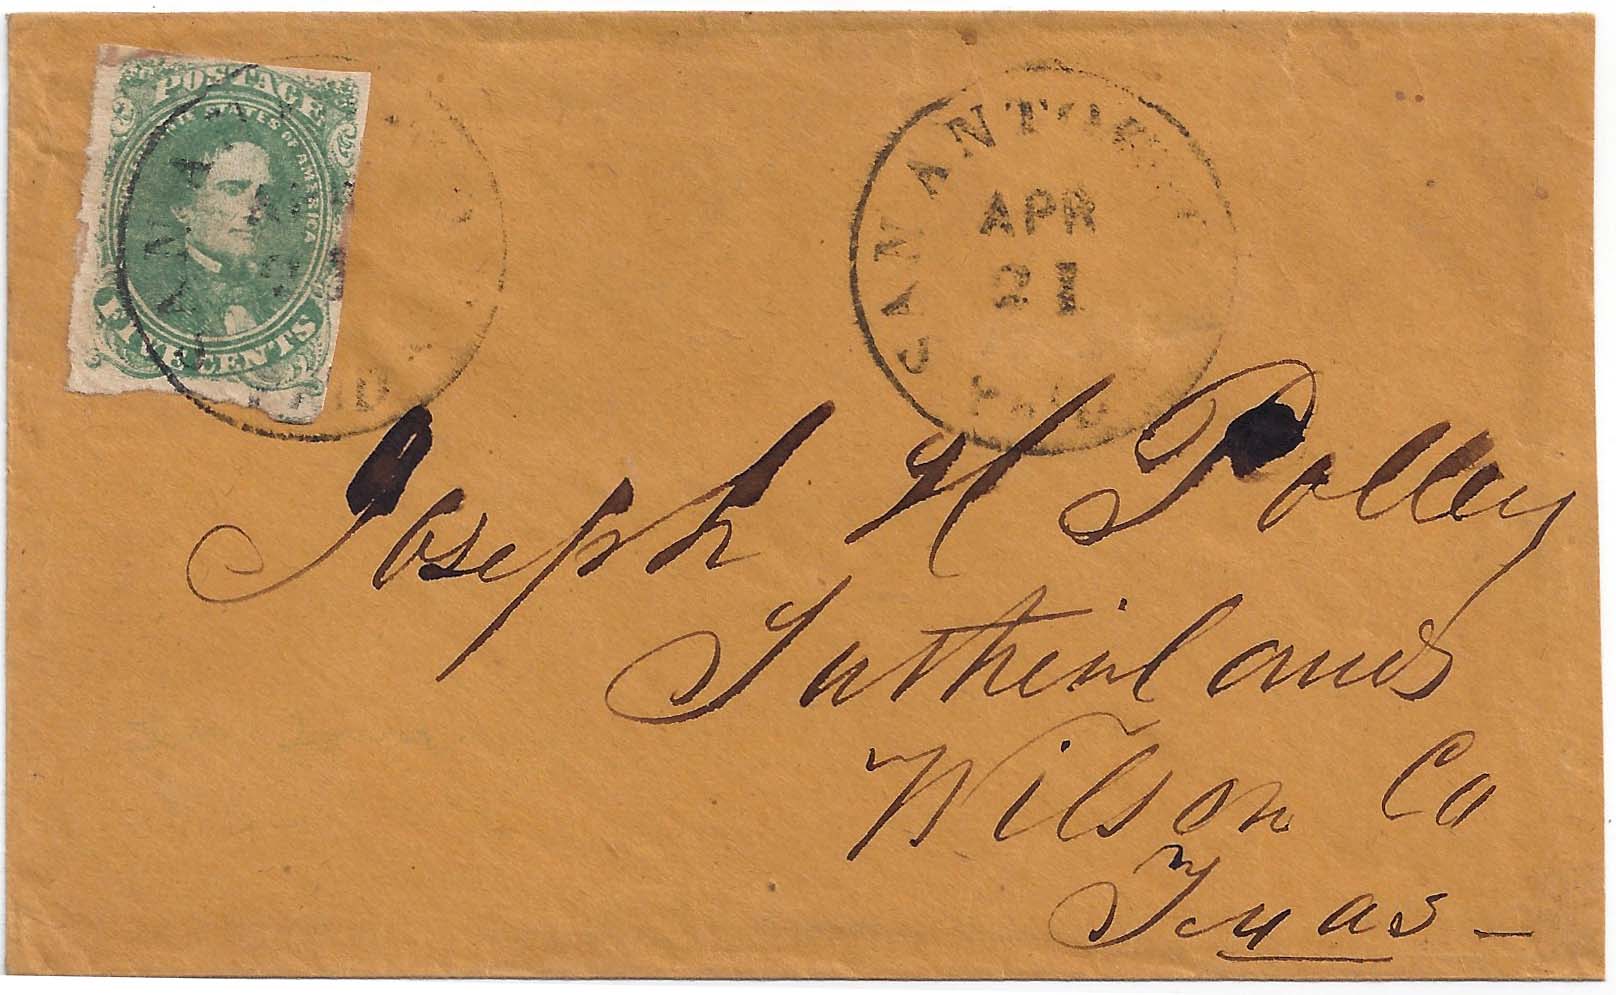 POSTAGE
CONFEDERATE STATES OF AMERICA
FIVE CENTS
SAN A
PAID
SAN ANTONIO
APR
21
PAID
Joseph H Polley
Sutherlands
Wilson Co
Texas